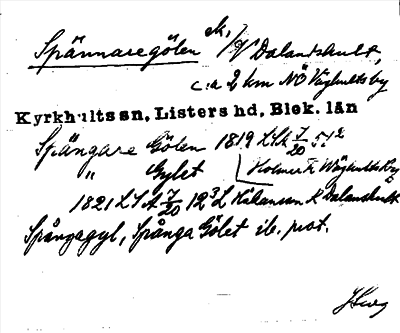 Spännaregölen sk, i/V Dalanshult,
c:a 2 km NÖ Väghults by
Kyrkhults sn, Listers hd, Blek. län
Spängare Gölen 1819 LSA 7/20 51²
" Gylet Holmar t. Wäghults by
1821 LSA 7/20 12³ L Håkanson t. Dalanshult
Spångagyl, Spånga Gölet ib. prot.